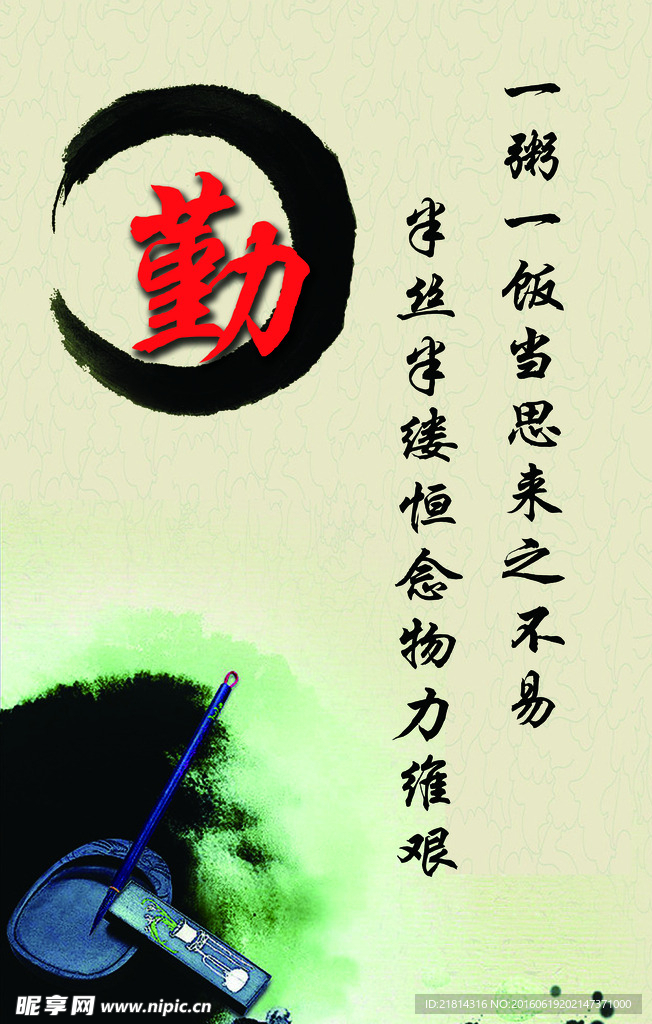 一粥一饭当思来之不易
半丝半缕恒念物力维艰
勤
昵享网 www.nipic.cn
ID:21814316 NO:20160619202147371000